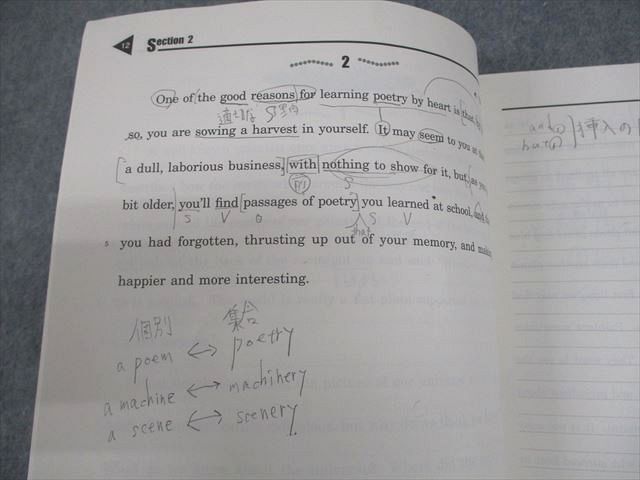 12 Section 2
2
One of the good reasons for learning poetry by heart is that
適切な
so, you are sowing a harvest in yourself. It may seem to you at
a dull, laborious business, with nothing to show for it, but,
S
bit older, you'll find passages of poetry you learned at school,
S V O S V
that
5 you had forgotten, thrusting up out of your memory, and
happier and more interesting.
個別 集合
a poem ↔ poetry
a machine ↔ machihery
a scene ↔ scenery
and
but
挿入の